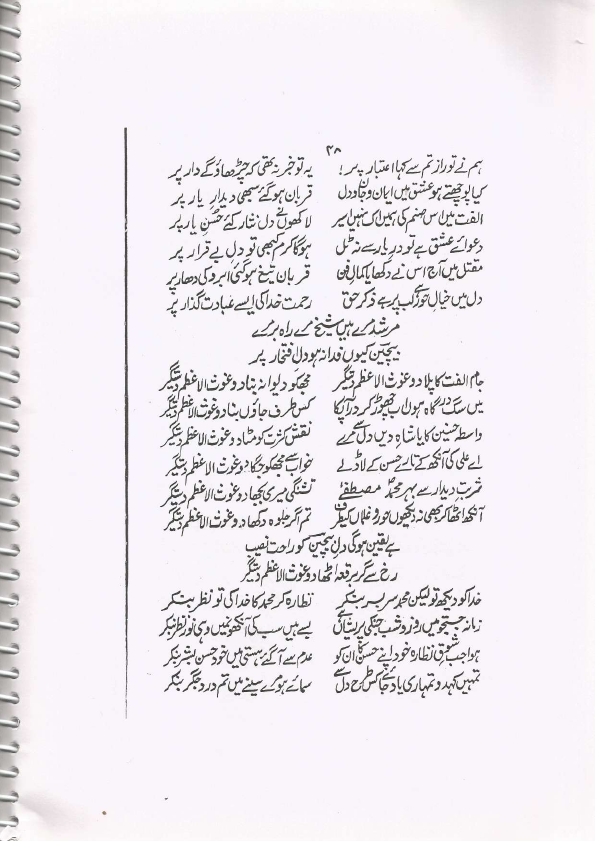 ۴۸
ہم نے تو راز تم سے کہا اعتبار پر! یہ تو خبر نہ تھی کہ چڑھاؤ گے دار پر
کیا پوچھتے ہو عشق میں ایمان و جاں و دل قربان ہو گئے سبھی دیدارِ یار پر
الفت میں اس صنم کی ہمیں اک نہیں اسیر لاکھوں نے دل نثار کئے حسنِ یار پر
دعوائے عشق ہے تو درِ یار سے نہ ٹل ہوگا کرم کبھی تو دلِ بے قرار پر
مقتل میں آج اس نے دکھایا کمالِ فن قربان تیغ ہو گئی ابرو کی دھار پر
دل میں خیال حور لب پر ہے ذکرِ حق رحمت خدا کی ایسے عبادت گذار پر
مرشد مرے ہیں شیخ مرے راہ بر مرے
بیچین کیوں فدا نہ ہو دل افتخار پر
جام الفت کا پلا دو غوث الاعظم دستگیر مجھکو دیوانہ بنا دو غوث الاعظم دستگیر
میں سگِ درگاہ ہوں اب چھوڑ کر در آپکا کس طرف جاؤں بتا دو غوث الاعظم دستگیر
واسطہ حسنین کا یا شاہِ دیں دل سے مرے نقش کثرت کو مٹا دو غوث الاعظم دستگیر
اے علی کی آنکھ کے تارے حسن کے لاڈلے خواب سے مجھکو جگا دو غوث الاعظم دستگیر
شربتِ دیدار سے بہرِ محمدؐ مصطفےٰ تشنگی میری بجھا دو غوث الاعظم دستگیر
آنکھ اٹھا کر بھی نہ دیکھوں حور و غلماں کیطرف تم اگر جلوہ دکھا دو غوث الاعظم دستگیر
ہے یقین ہوگی دلِ بیچین کو راحت نصیب
رخ سے گر برقعہ اٹھا دو غوث الاعظم دستگیر
خدا کو دیکھ تو لیکن محمد سر بسر بنکر نظارہ کر محمد کا خدا کی تو نظر بنکر
زمانہ جستجو میں روز و شب جنکی پریشاں ہے بسے ہیں سب کی آنکھوں میں وہی نورِ نظر بنکر
ہوا جب شوق نظارہ خود اپنے حسن کا ان کو عدم سے آ گئے ہستی میں خود حسن البشر بنکر
تمہیں کہدو تمہاری یاد جائے کس طرح دل سے سمائے ہو مرے سینے میں تم دردِ جگر بنکر